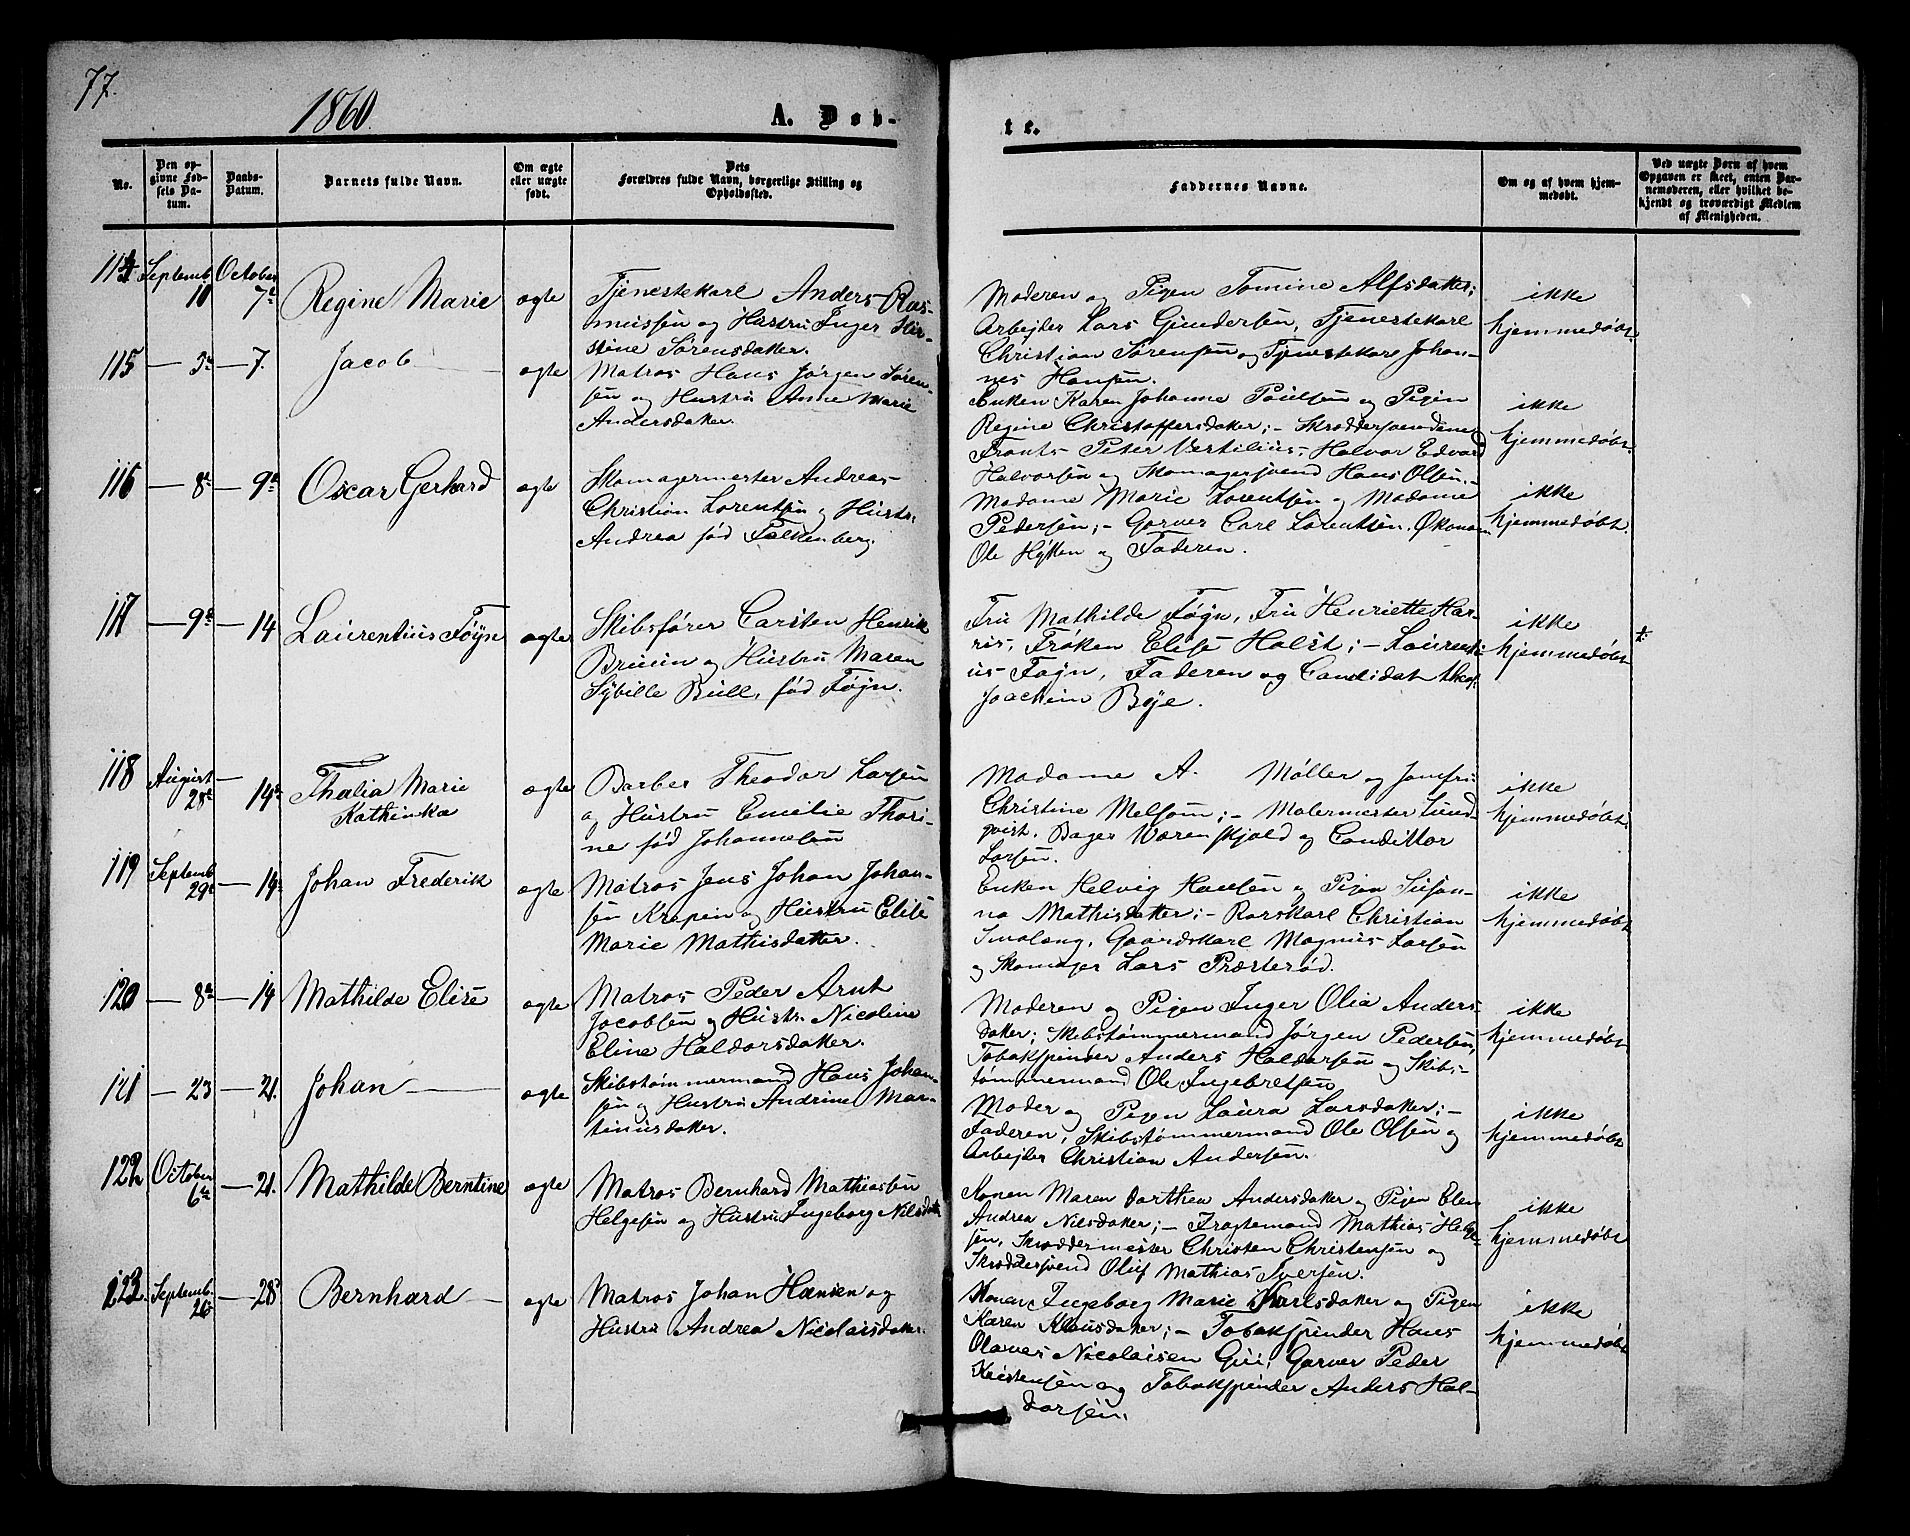 77.
1860.
A. Døb-
te.
No.
Den op-
givne Fød-
sels Da-
tum.
Daabs-
Datum.
Barnets fulde Navn.
Om ægte
eller uægte
født.
Dets
Forældres fulde Navn, borgerlige Stilling og
Opholdssted.
Faddernes Navne.
Om og af hvem hjem-
medøbt.
Ved uægte Børn af hvem
Opgaven er skeet, enten Bar-
nemoderen, eller hvilket be-
kjendt og troværdigt Medlem
af Menigheden.
114 Septemb. 11 October 7de Regine Marie ægte
Tjenestekarl Anders Ras-
mussen og Hustru Inger Kir-
stine Sørensdatter.
Moderen og Pigen Tomine Alfsdatter;
Arbejder Lars Gundersen, Tjenestekarl
Christian Sørensen og Tjenestekarl Johan-
nes Hansen.
ikke
hjemmedøbt
115 — 5te — 7. Jacob — ægte
Matros Hans Jørgen Søren-
sen og Hustru Anne Marie
Andersdatter.
Enken Karen Johanne Poulsen og Pigen
Regine Christoffersdatter; – Skræddersvendene
Frants Peter Vertilius, Halvor Edvard
Halvorsen og Skomagersvend Hans Olsen.
ikke
hjemmedøbt
116 — 8de — 9de Oscar Gerhard ægte
Skomagermester Andreas
Christian Lorentsen og Hustr.
Andrea fød Falkenberg.
Madame Marie Lorentsen og Madame
Pedersen; – Garver Carl Lorentsen, Økonom
Ole Hytten og Faderen.
ikke
hjemmedøbt
117 — 9de — 14 Laurentius Føyn ægte
Skibsfører Carsten Henrik
Bruun og Hustru Maren
Sybille Bull, fød Føyn.
Fru Mathilde Føyn, Fru Henriette Har-
ris, Frøken Elise Holst; – Laurenti-
us Føyn, Faderen og Candidat
Joachim Bøje.
ikke
hjemmedøbt
118 August 28de — 14de Thalia Marie
Kathinka
ægte
Barber Theodor Larsen
og Hustru Emilie Thori-
ne fød Johannesen
Madame A. Møller og Jomfru
Christine Melsom; – Malermester Lund-
qvist, Bager Wærenskjold og Conditor
Larsen.
ikke
hjemmedøbt
119 Septemb. 29de — 14de Johan Frederik ægte
Matros Jens Johan Johan-
sen Krapein og Hustru Elise
Marie Mathisdatter.
Enken Helvig Hansen og Pigen Susan-
na Mathisdatter; – Rorskarl Christian
Smalang, Gaardskarl Magnus Larsen
og Skomager Lars Præsterød.
ikke
hjemmedøbt
120 — 8de — 14 Mathilde Elise ægte
Matros Peder Arnt
Jacobsen og Hustr. Nicoline
Eline Haldorsdatter.
Moderen og Pigen Inger Olia Anders-
datter; Skibstømmermand Jørgen Pedersen,
Tobakspinder Anders Haldorsen og Skibs-
tømmermand Ole Ingebretsen
ikke
hjemmedøbt
121 — 23 — 21. Johan — ægte
Skibstømmermand Hans Johan-
sen og Hustru Andrine Mar-
tinusdatter.
Moder og Pigen Laura Larsdatter; –
Faderen, Skibstømmermand Ole Olsen og
Arbejder Christian Andersen.
ikke
hjemmedøbt
122 October 6te — 21. Mathilde Berntine ægte
Matros Bernhard Mathiassen
Helgesen og Hustru Ingeborg Nilsdatter
Konen Maren Dorthea Andersdatter og Pigen Elen
Andrea Nilsdatter; – Fragtemand Mathias Helge-
sen, Skræddermester Christen Christensen og
Skræddersvend Oluf Mathias Iversen.
ikke
hjemmedøbt
123. Septemb. 26 — 28de Bernhard — ægte
Matros Johan Hansen og
Hustru Andrea Nicolaisdatter.
Konen Ingeborg Marie Karlsdatter og Pigen
Karen Klausdatter; – Tobakspinder Hans
Olaves Nicolaisen Gui, Garver Peder
Kristensen og Tobakspinder Anders Hal-
dorsen.
ikke
hjemmedøbt